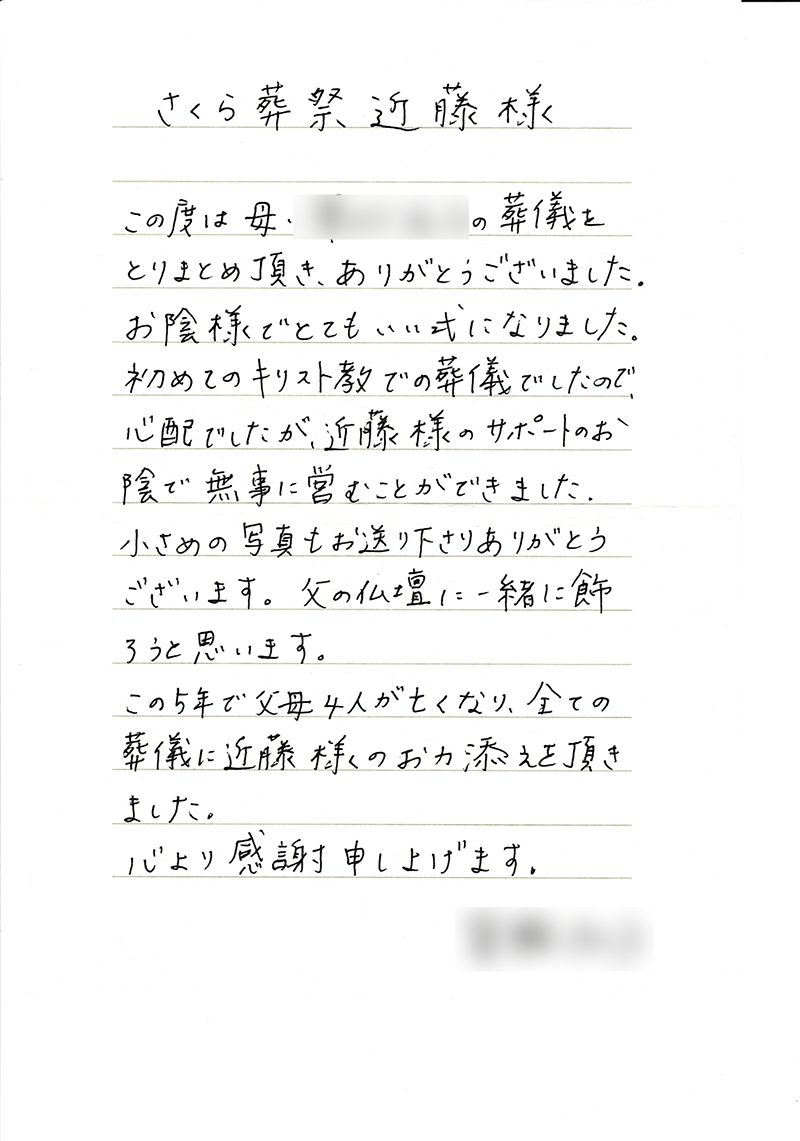 さくら葬祭 近藤様
この度は母・の葬儀を
とりまとめ頂き、ありがとうございました。
お陰様でとてもいい式になりました。
初めてのキリスト教での葬儀でしたので、
心配でしたが、近藤様のサポートのお
陰で無事に営むことができました。
小さめの写真もお送り下さりありがとう
ございます。父の仏壇に一緒に飾
ろうと思います。
この5年で父母4人が亡くなり、全ての
葬儀に近藤様のお力添えを頂き
ました。
心より感謝申し上げます。